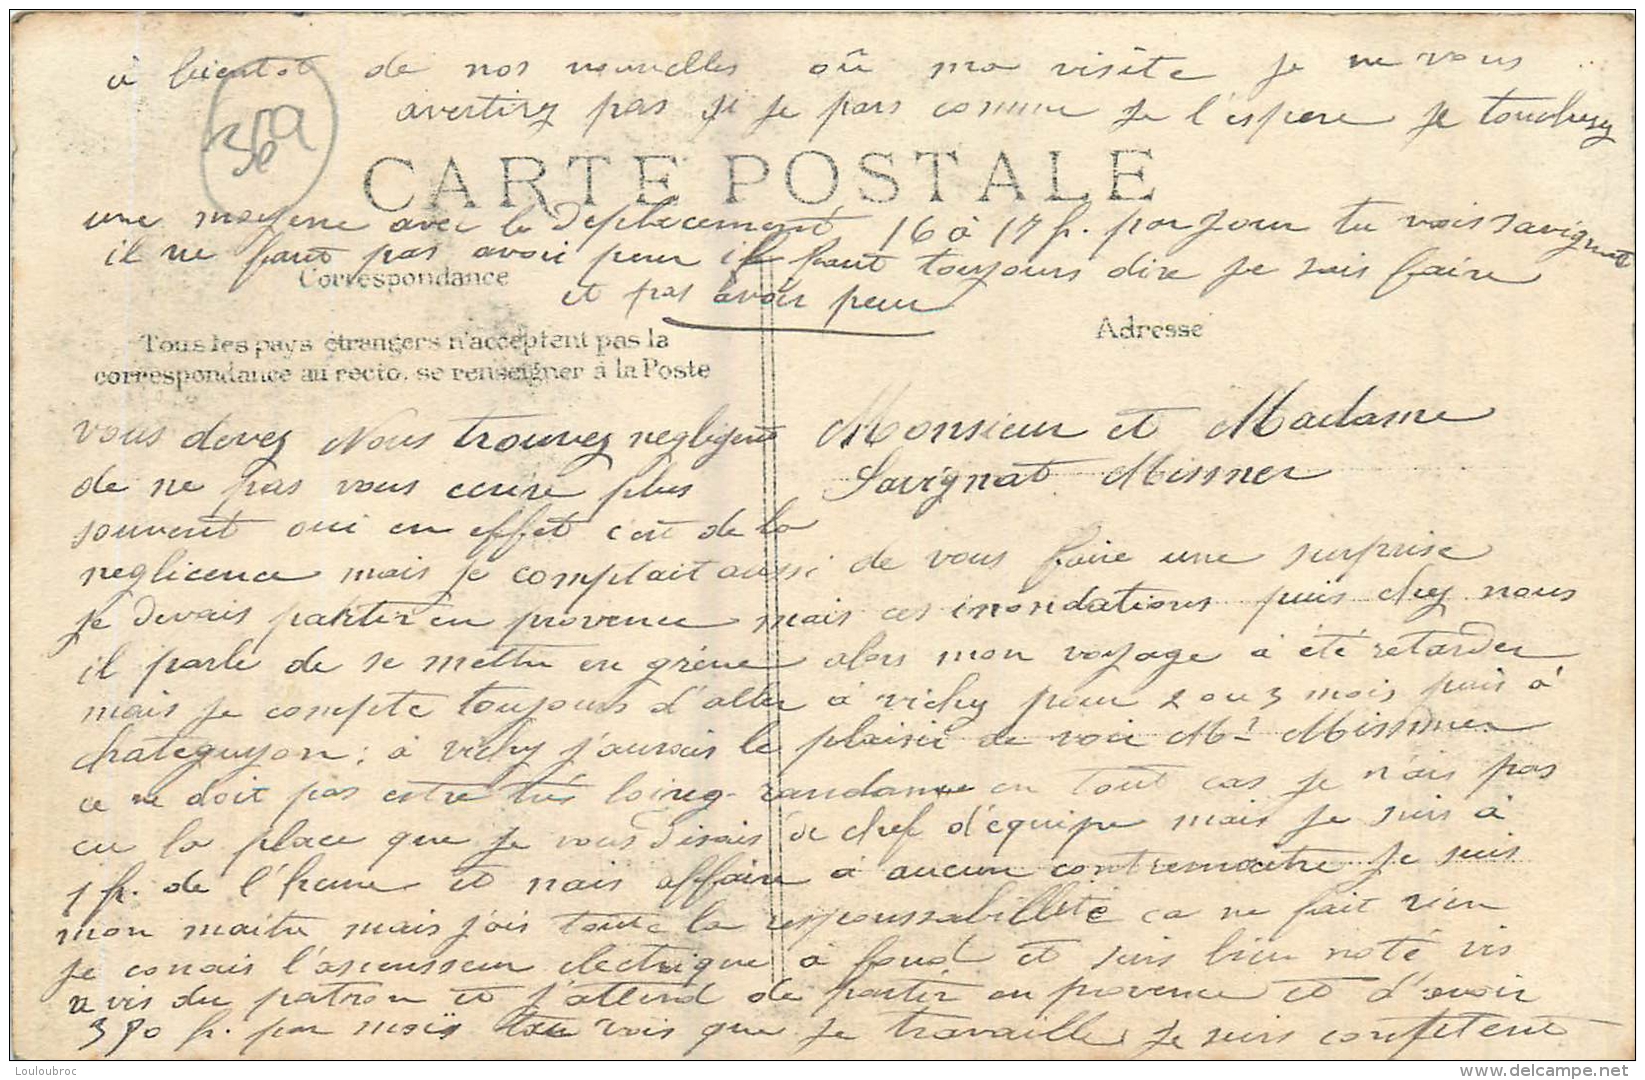 à bientot de nos nouvelles où ma visite je ne vous
avertirez pas si je pars comme je l'espere je toucherez
35a
CARTE POSTALE
une moyene avec le deplacement 16 à 17 f. par jour tu vois savignat
il ne faut pas avoir peur il faut toujours dire je sais faire
Correspondance
et pas avoir peur
Adresse
Tous les pays étrangers n'acceptent pas la
correspondance au recto. se renseigner à la Poste
Monsieur et Madame
Savignat Missner
vous devez Nous trouvez negligent
de ne pas vous ecrire plus
souvent oui en effet c'est de la
neglicence mais je comptait aussi de vous faire une surprise
je devais partir en provence mais ces inondations puis chez nous
il parle de se mettre en grève alors mon voyage à été retarder
mais je compte toujours d'aller à vichy pour 2 ou 3 mois puis à
chateguyon; à vichy j'aurais le plaisir de voir Mr Missner
ce ne doit pas estre très loin randanne en tout cas je n'ais pas
eu la place que je vous disais de chef d'équipe mais je suis à
1 f. de l'heure et nais affaire à aucun contremaitre je suis
mon maitre mais j'ais toute la responssabillité ca ne fait rien
je conais l'ascensseur electrique à fond et suis bien noté vis
a vis du patron et j'attend de partir en provence et d'avoir
390 f. par mois tu vois que je travaille je suis competent
Louloubroc
www.delcampe.net